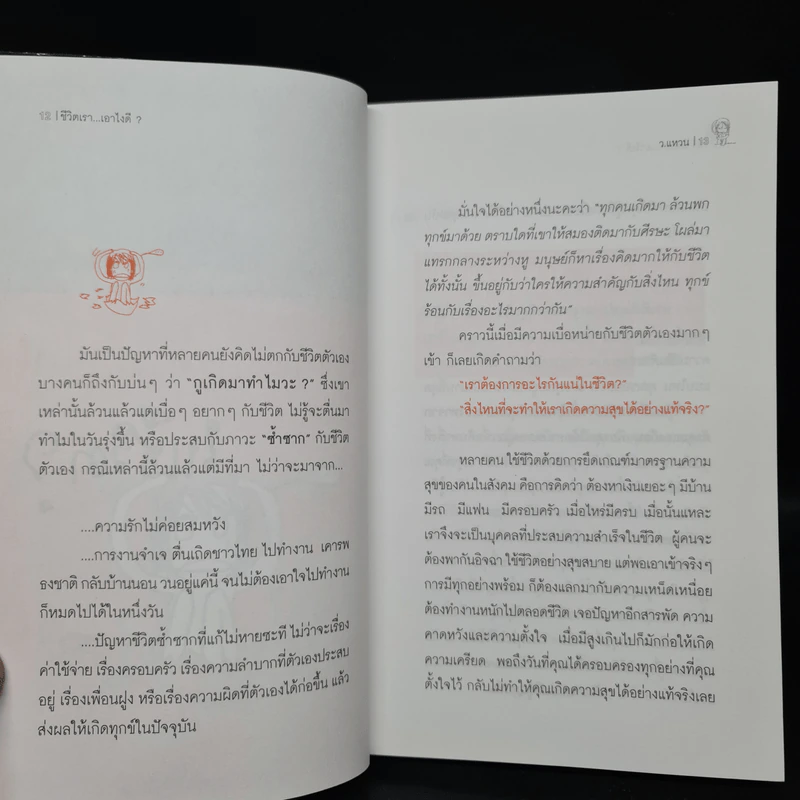 12 | ชีวิตเรา...เอาไงดี ?
มันเป็นปัญหาที่หลายคนยังคิดไม่ตกกับชีวิตตัวเอง
บางคนก็ถึงกับบ่นๆ ว่า "กูเกิดมาทำไมวะ ?" ซึ่งเขา
เหล่านั้นล้วนแล้วแต่เบื่อๆ อยากๆ กับชีวิต ไม่รู้จะตื่นมา
ทำไมในวันรุ่งขึ้น หรือประสบกับภาวะ "ซ้ำซาก" กับชีวิต
ตัวเอง กรณีเหล่านี้ล้วนแล้วแต่มีที่มา ไม่ว่าจะมาจาก...
....ความรักไม่ค่อยสมหวัง
....การงานจำเจ ตื่นเถิดชาวไทย ไปทำงาน เคารพ
ธงชาติ กลับบ้านนอน วนอยู่แค่นี้ จนไม่ต้องเอาใจไปทำงาน
ก็หมดไปได้ในหนึ่งวัน
....ปัญหาชีวิตซ้ำซากที่แก้ไม่หายซะที ไม่ว่าจะเรื่อง
ค่าใช้จ่าย เรื่องครอบครัว เรื่องความลำบากที่ตัวเองประสบ
อยู่ เรื่องเพื่อนฝูง หรือเรื่องความผิดที่ตัวเองได้ก่อขึ้น แล้ว
ส่งผลให้เกิดทุกข์ในปัจจุบัน
ว.แหวน | 13
มั่นใจได้อย่างหนึ่งนะคะว่า "ทุกคนเกิดมา ล้วนพก
ทุกข์มาด้วย ตราบใดที่เขาให้สมองติดมากับศีรษะ โผล่มา
แทรกกลางระหว่างหู มนุษย์ก็หาเรื่องคิดมากให้กับชีวิต
ได้ทั้งนั้น ขึ้นอยู่กับว่าใครให้ความสำคัญกับสิ่งไหน ทุกข์
ร้อนกับเรื่องอะไรมากกว่ากัน"
คราวนี้เมื่อมีความเบื่อหน่ายกับชีวิตตัวเองมากๆ
เข้า ก็เลยเกิดคำถามว่า
"เราต้องการอะไรกันแน่ในชีวิต?"
"สิ่งไหนที่จะทำให้เราเกิดความสุขได้อย่างแท้จริง?"
หลายคน ใช้ชีวิตด้วยการยึดเกณฑ์มาตรฐานความ
สุขของคนในสังคม คือการคิดว่า ต้องหาเงินเยอะๆ มีบ้าน
มีรถ มีแฟน มีครอบครัว เมื่อไหร่มีครบ เมื่อนั้นแหละ
เราจึงจะเป็นบุคคลที่ประสบความสำเร็จในชีวิต ผู้คนจะ
ต้องพากันอิจฉา ใช้ชีวิตอย่างสุขสบาย แต่พอเอาเข้าจริงๆ
การมีทุกอย่างพร้อม ก็ต้องแลกมากับความเหน็ดเหนื่อย
ต้องทำงานหนักไปตลอดชีวิต เจอปัญหาอีกสารพัด ความ
คาดหวังและความตั้งใจ เมื่อมีสูงเกินไปก็มักก่อให้เกิด
ความเครียด พอถึงวันที่คุณได้ครอบครองทุกอย่างที่คุณ
ตั้งใจไว้ กลับไม่ทำให้คุณเกิดความสุขได้อย่างแท้จริงเลย